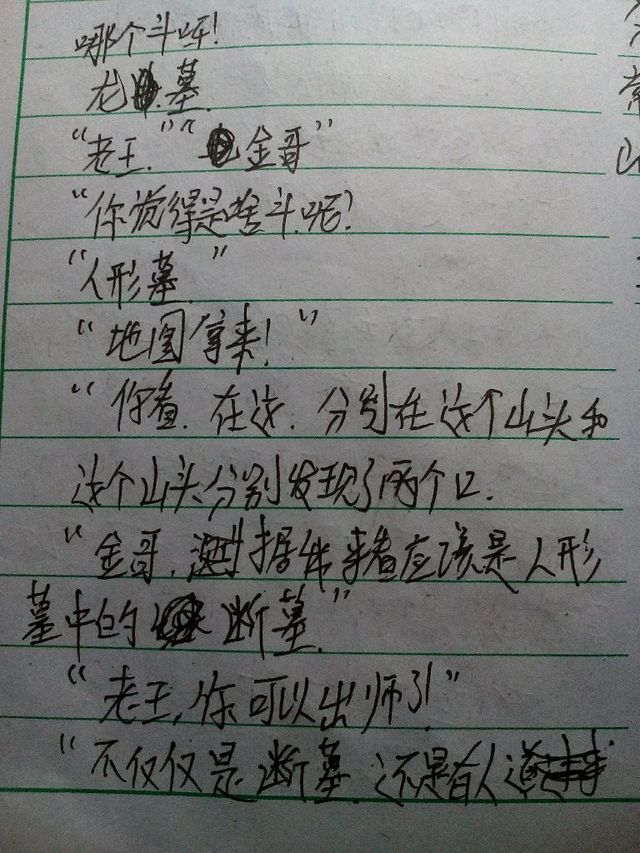 哪个斗呀!
龙墓.
“老王.”“金哥”
“你觉得是啥斗呢?
“人形墓.”
“地图拿来!”
“你看.在这.分别在这个山头和
这个山头分别发现了两个口.
“金哥,据我来看应该是人形
墓中的断墓.”
“老王,你可以出师了!”
“不仅仅是断墓.还是有人